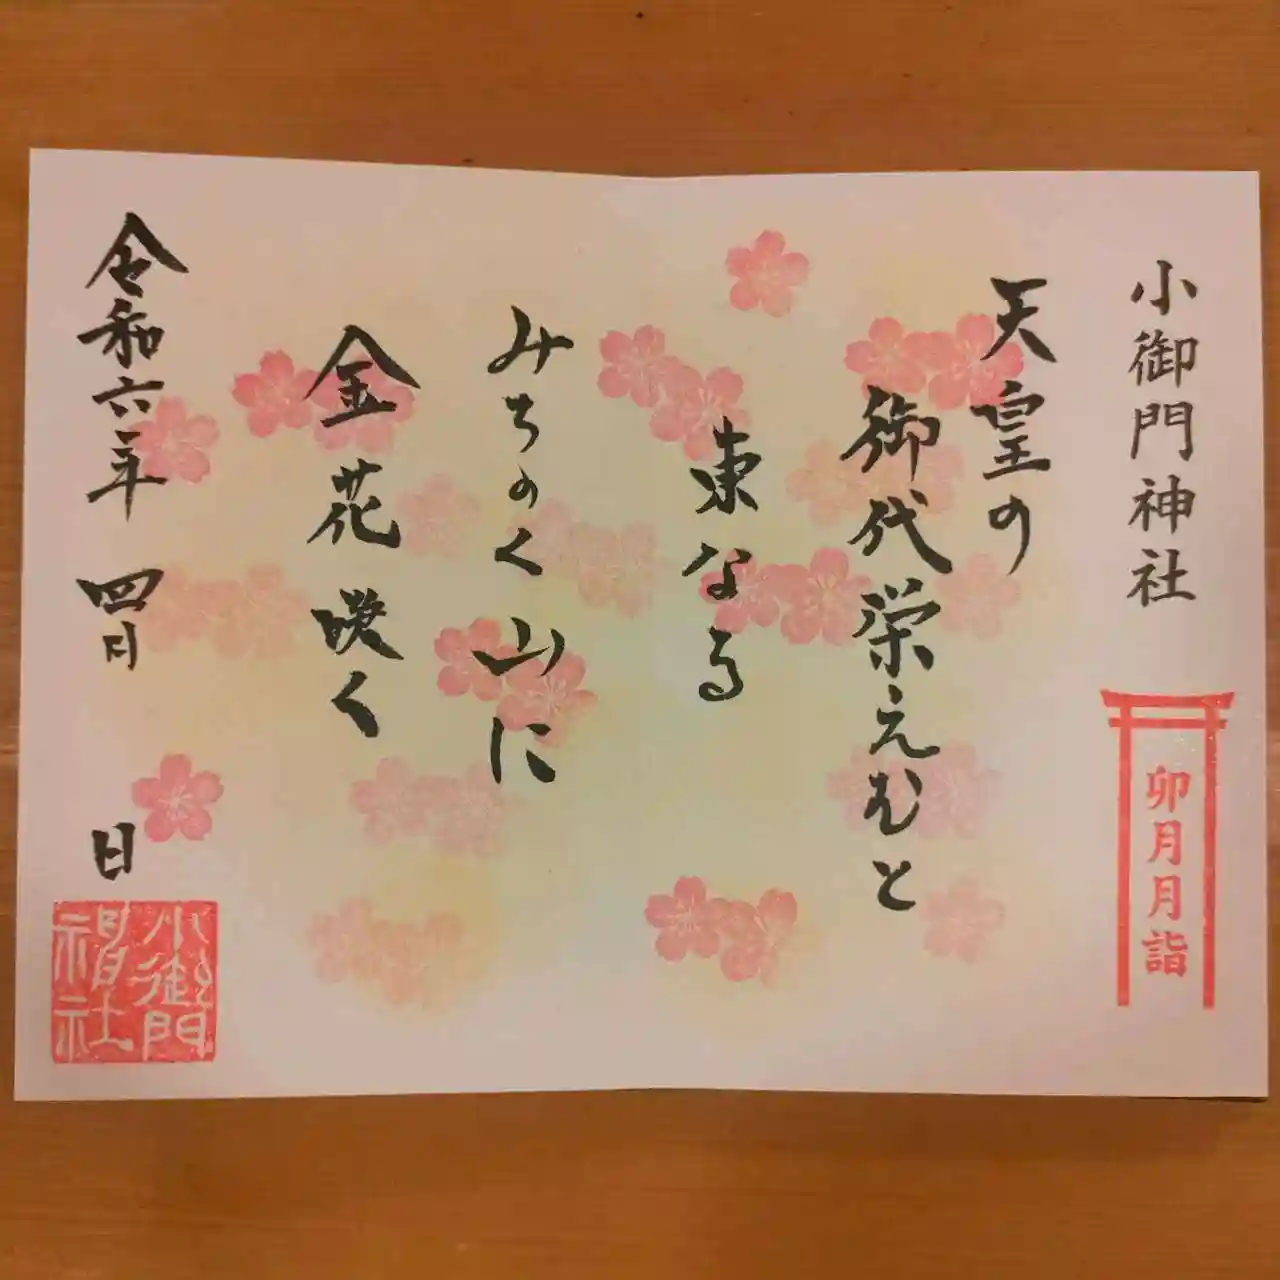 小御門神社
卯月月詣
天皇の
御代栄えむと
東なる
みちのく山に
金花咲く
令和六年 四月 日
小御門
神社